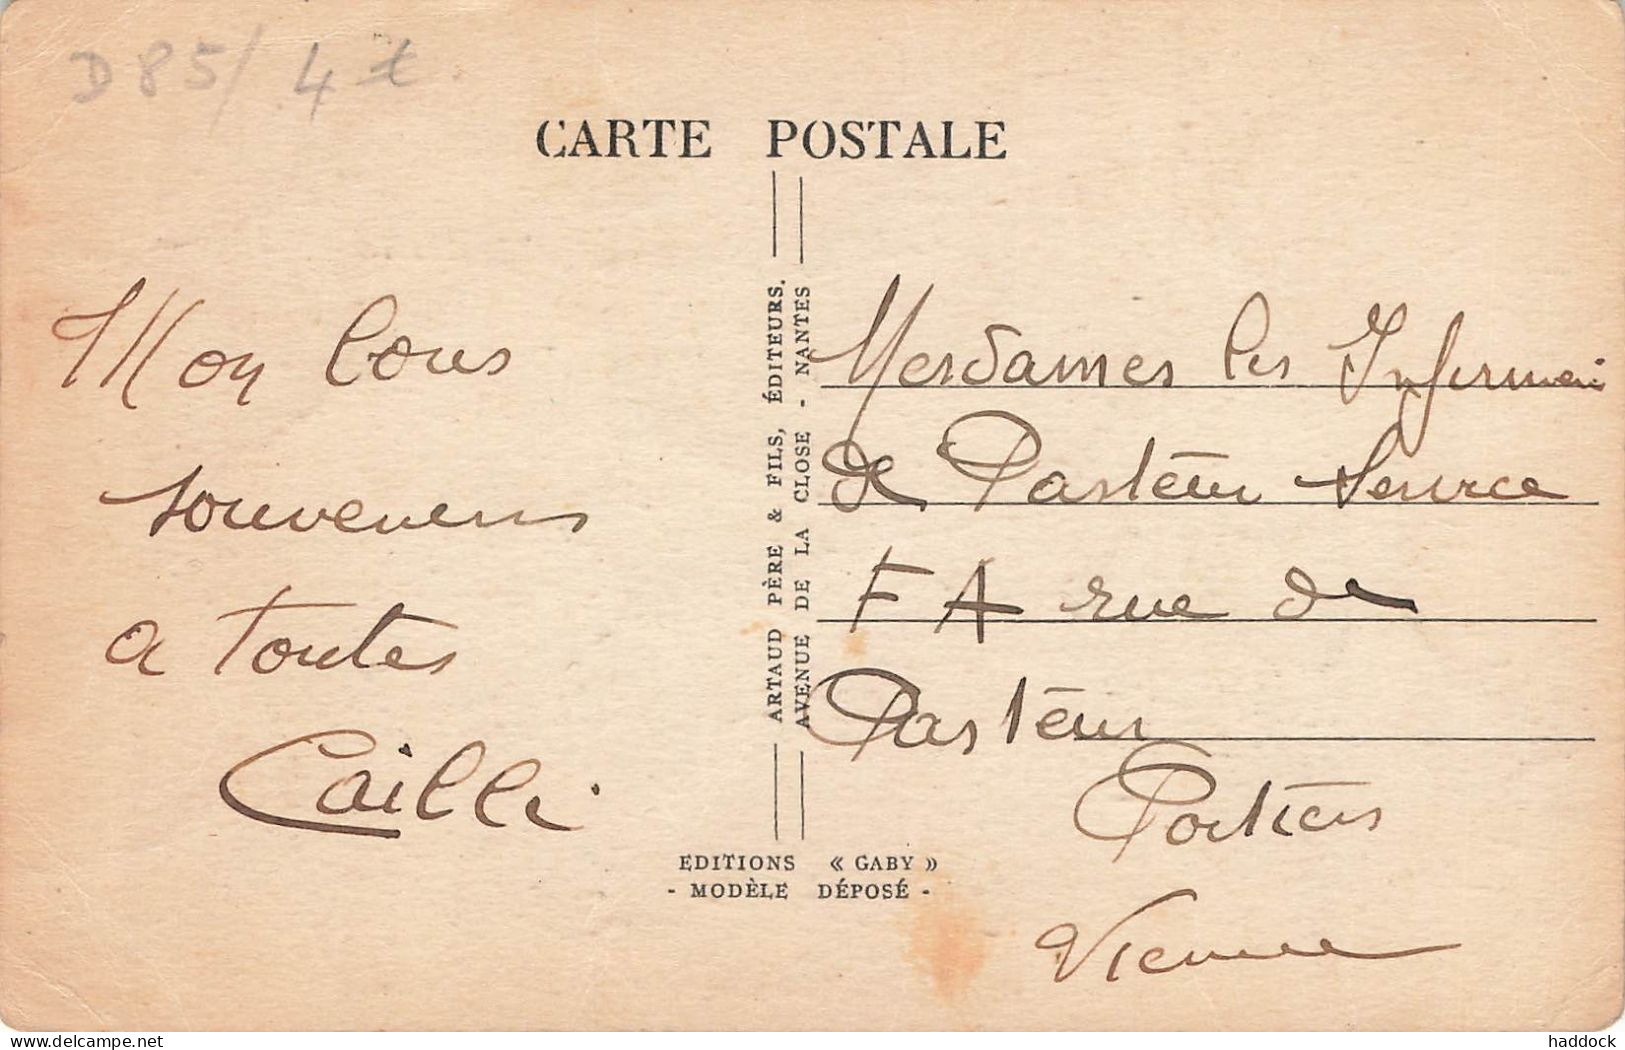 D 85/ 4 t
CARTE POSTALE
Mon bons
souvenirs
a toutes
Cailli
ARTAUD PÈRE & FILS, ÉDITEURS.
AVENUE DE LA CLOSE - NANTES
Mesdames les Infirmeri
de Pasteur Service
F A rue de
Pasteur
Poitiers
Vienne
EDITIONS « GABY »
- MODÈLE DÉPOSÉ -
delcampe.net
haddock